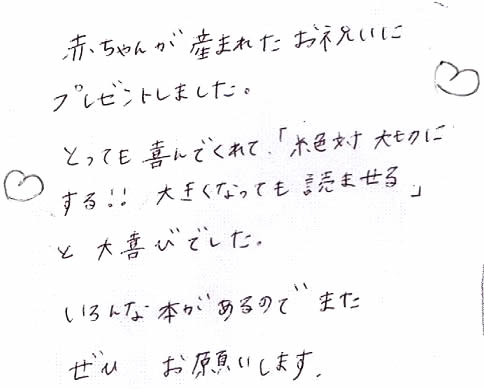 赤ちゃんが産まれたお祝いに
プレゼントしました。
とっても喜んでくれて、「絶対大切に
する!! 大きくなっても読ませる」
と大喜びでした。
いろんな本があるのでまた
ぜひ お願いします。